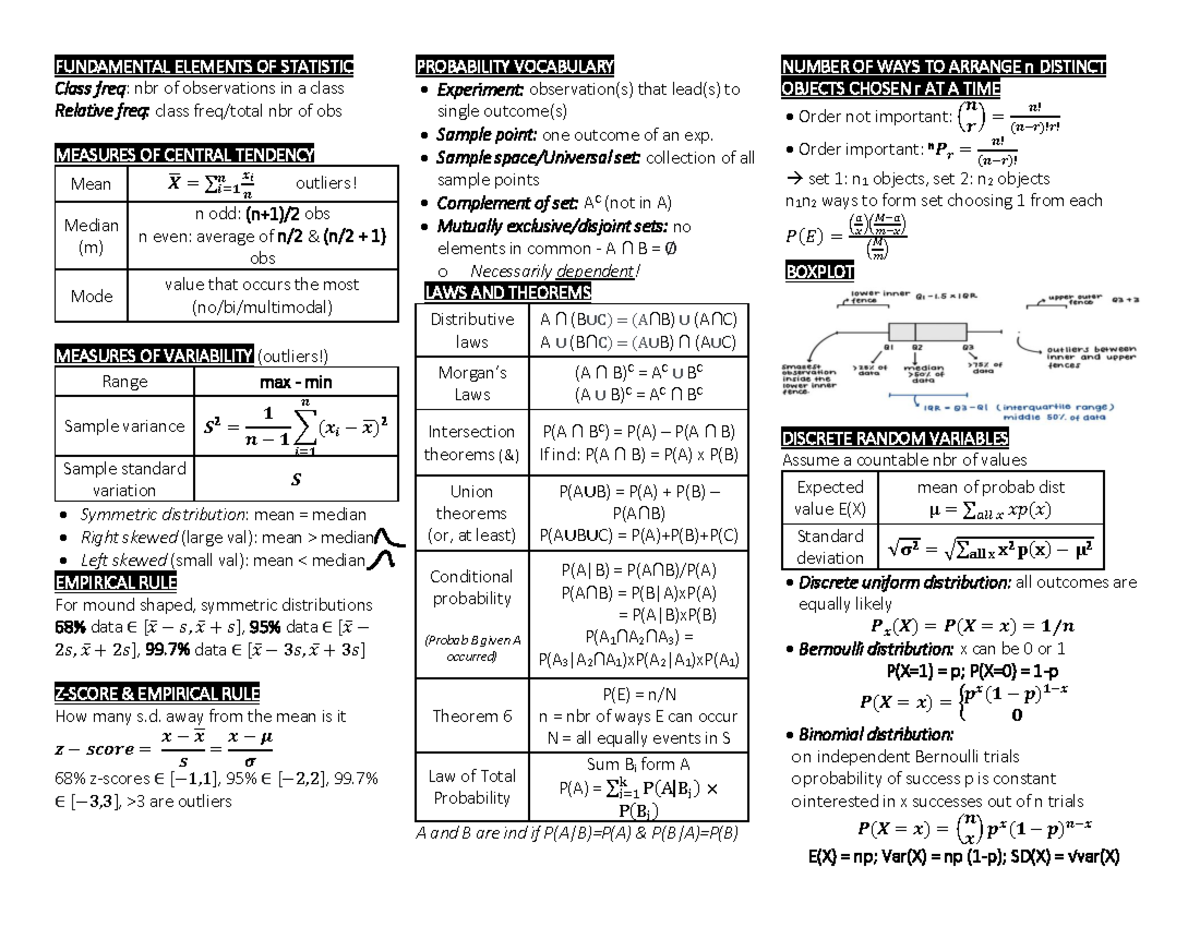 FUNDAMENTAL ELEMENTS OF STATISTIC
Class freq: nbr of observations in a class
Relative freq: class freq/total nbr of obs
MEASURES OF CENTRAL TENDENCY
Mean X̅ = ∑ⁿᵢ₌₁ xᵢ/n outliers!
Median (m)
n odd: (n+1)/2 obs
n even: average of n/2 & (n/2 + 1)
obs
Mode
value that occurs the most
(no/bi/multimodal)
MEASURES OF VARIABILITY (outliers!)
Range max - min
Sample variance S² = 1/(n − 1) ∑ⁿᵢ₌₁ (xᵢ − x̅)²
Sample standard
variation
S
• Symmetric distribution: mean = median
• Right skewed (large val): mean > median
• Left skewed (small val): mean < median
EMPIRICAL RULE
For mound shaped, symmetric distributions
68% data ∈ [x̄ − s, x̄ + s], 95% data ∈ [x̄ −
2s, x̄ + 2s], 99.7% data ∈ [x̄ − 3s, x̄ + 3s]
Z-SCORE & EMPIRICAL RULE
How many s.d. away from the mean is it
z − score = (x − x̅)/s = (x − μ)/σ
68% z-scores ∈ [−1,1], 95% ∈ [−2,2], 99.7%
∈ [−3,3], >3 are outliers
PROBABILITY VOCABULARY
• Experiment: observation(s) that lead(s) to
single outcome(s)
• Sample point: one outcome of an exp.
• Sample space/Universal set: collection of all
sample points
• Complement of set: Aᶜ (not in A)
• Mutually exclusive/disjoint sets: no
elements in common - A ∩ B = Ø
o Necessarily dependent!
LAWS AND THEOREMS
Distributive
laws
A ∩ (B∪C) = (A∩B) ∪ (A∩C)
A ∪ (B∩C) = (A∪B) ∩ (A∪C)
Morgan's
Laws
(A ∩ B)ᶜ = Aᶜ ∪ Bᶜ
(A ∪ B)ᶜ = Aᶜ ∩ Bᶜ
Intersection
theorems (&)
P(A ∩ Bᶜ) = P(A) – P(A ∩ B)
If ind: P(A ∩ B) = P(A) x P(B)
Union
theorems
(or, at least)
P(A∪B) = P(A) + P(B) –
P(A∩B)
P(A∪B∪C) = P(A)+P(B)+P(C)
Conditional
probability
(Probab B given A
occurred)
P(A|B) = P(A∩B)/P(A)
P(A∩B) = P(B|A)xP(A)
= P(A|B)xP(B)
P(A₁∩A₂∩A₃) =
P(A₃|A₂∩A₁)xP(A₂|A₁)xP(A₁)
Theorem 6
P(E) = n/N
n = nbr of ways E can occur
N = all equally events in S
Law of Total
Probability
Sum Bᵢ form A
P(A) = ∑ᵏᵢ₌₁ P(A|Bᵢ) ×
P(Bᵢ)
A and B are ind if P(A|B)=P(A) & P(B|A)=P(B)
NUMBER OF WAYS TO ARRANGE n DISTINCT
OBJECTS CHOSEN r AT A TIME
• Order not important: (n r) = n!/((n−r)!r!)
• Order important: ⁿPᵣ = n!/(n−r)!
→ set 1: n₁ objects, set 2: n₂ objects
n₁n₂ ways to form set choosing 1 from each
P(E) = (a x)(M−a m−x)/(M m)
BOXPLOT
lower inner fence Q1-1.5 x IQR
upper outer fence Q3 + 3
Q1 Q2 Q3
outliers between
inner and upper
fences
smallest
observation
inside the
lower inner
fence
>25% of
data
median
>50% of
data
>75% of
data
IQR = Q3-Q1 (interquartile range)
middle 50% of data
DISCRETE RANDOM VARIABLES
Assume a countable nbr of values
Expected
value E(X)
mean of probab dist
μ = ∑ₐₗₗ ₓ xp(x)
Standard
deviation
√σ² = √(∑ₐₗₗ ₓ x²p(x) − μ²)
• Discrete uniform distribution: all outcomes are
equally likely
Pₓ(X) = P(X = x) = 1/n
• Bernoulli distribution: x can be 0 or 1
P(X=1) = p; P(X=0) = 1-p
P(X = x) = { pˣ(1 − p)¹⁻ˣ
0
• Binomial distribution:
on independent Bernoulli trials
oprobability of success p is constant
ointerested in x successes out of n trials
P(X = x) = (n x) pˣ(1 − p)ⁿ⁻ˣ
E(X) = np; Var(X) = np (1-p); SD(X) = √var(X)